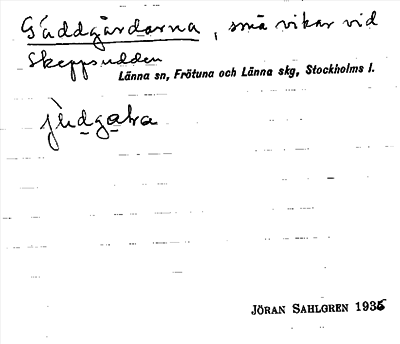 Gäddgårdarna, små vikar vid
Skeppsudden
Länna sn, Frötuna och Länna skg, Stockholms l.
JÖRAN SAHLGREN 1935